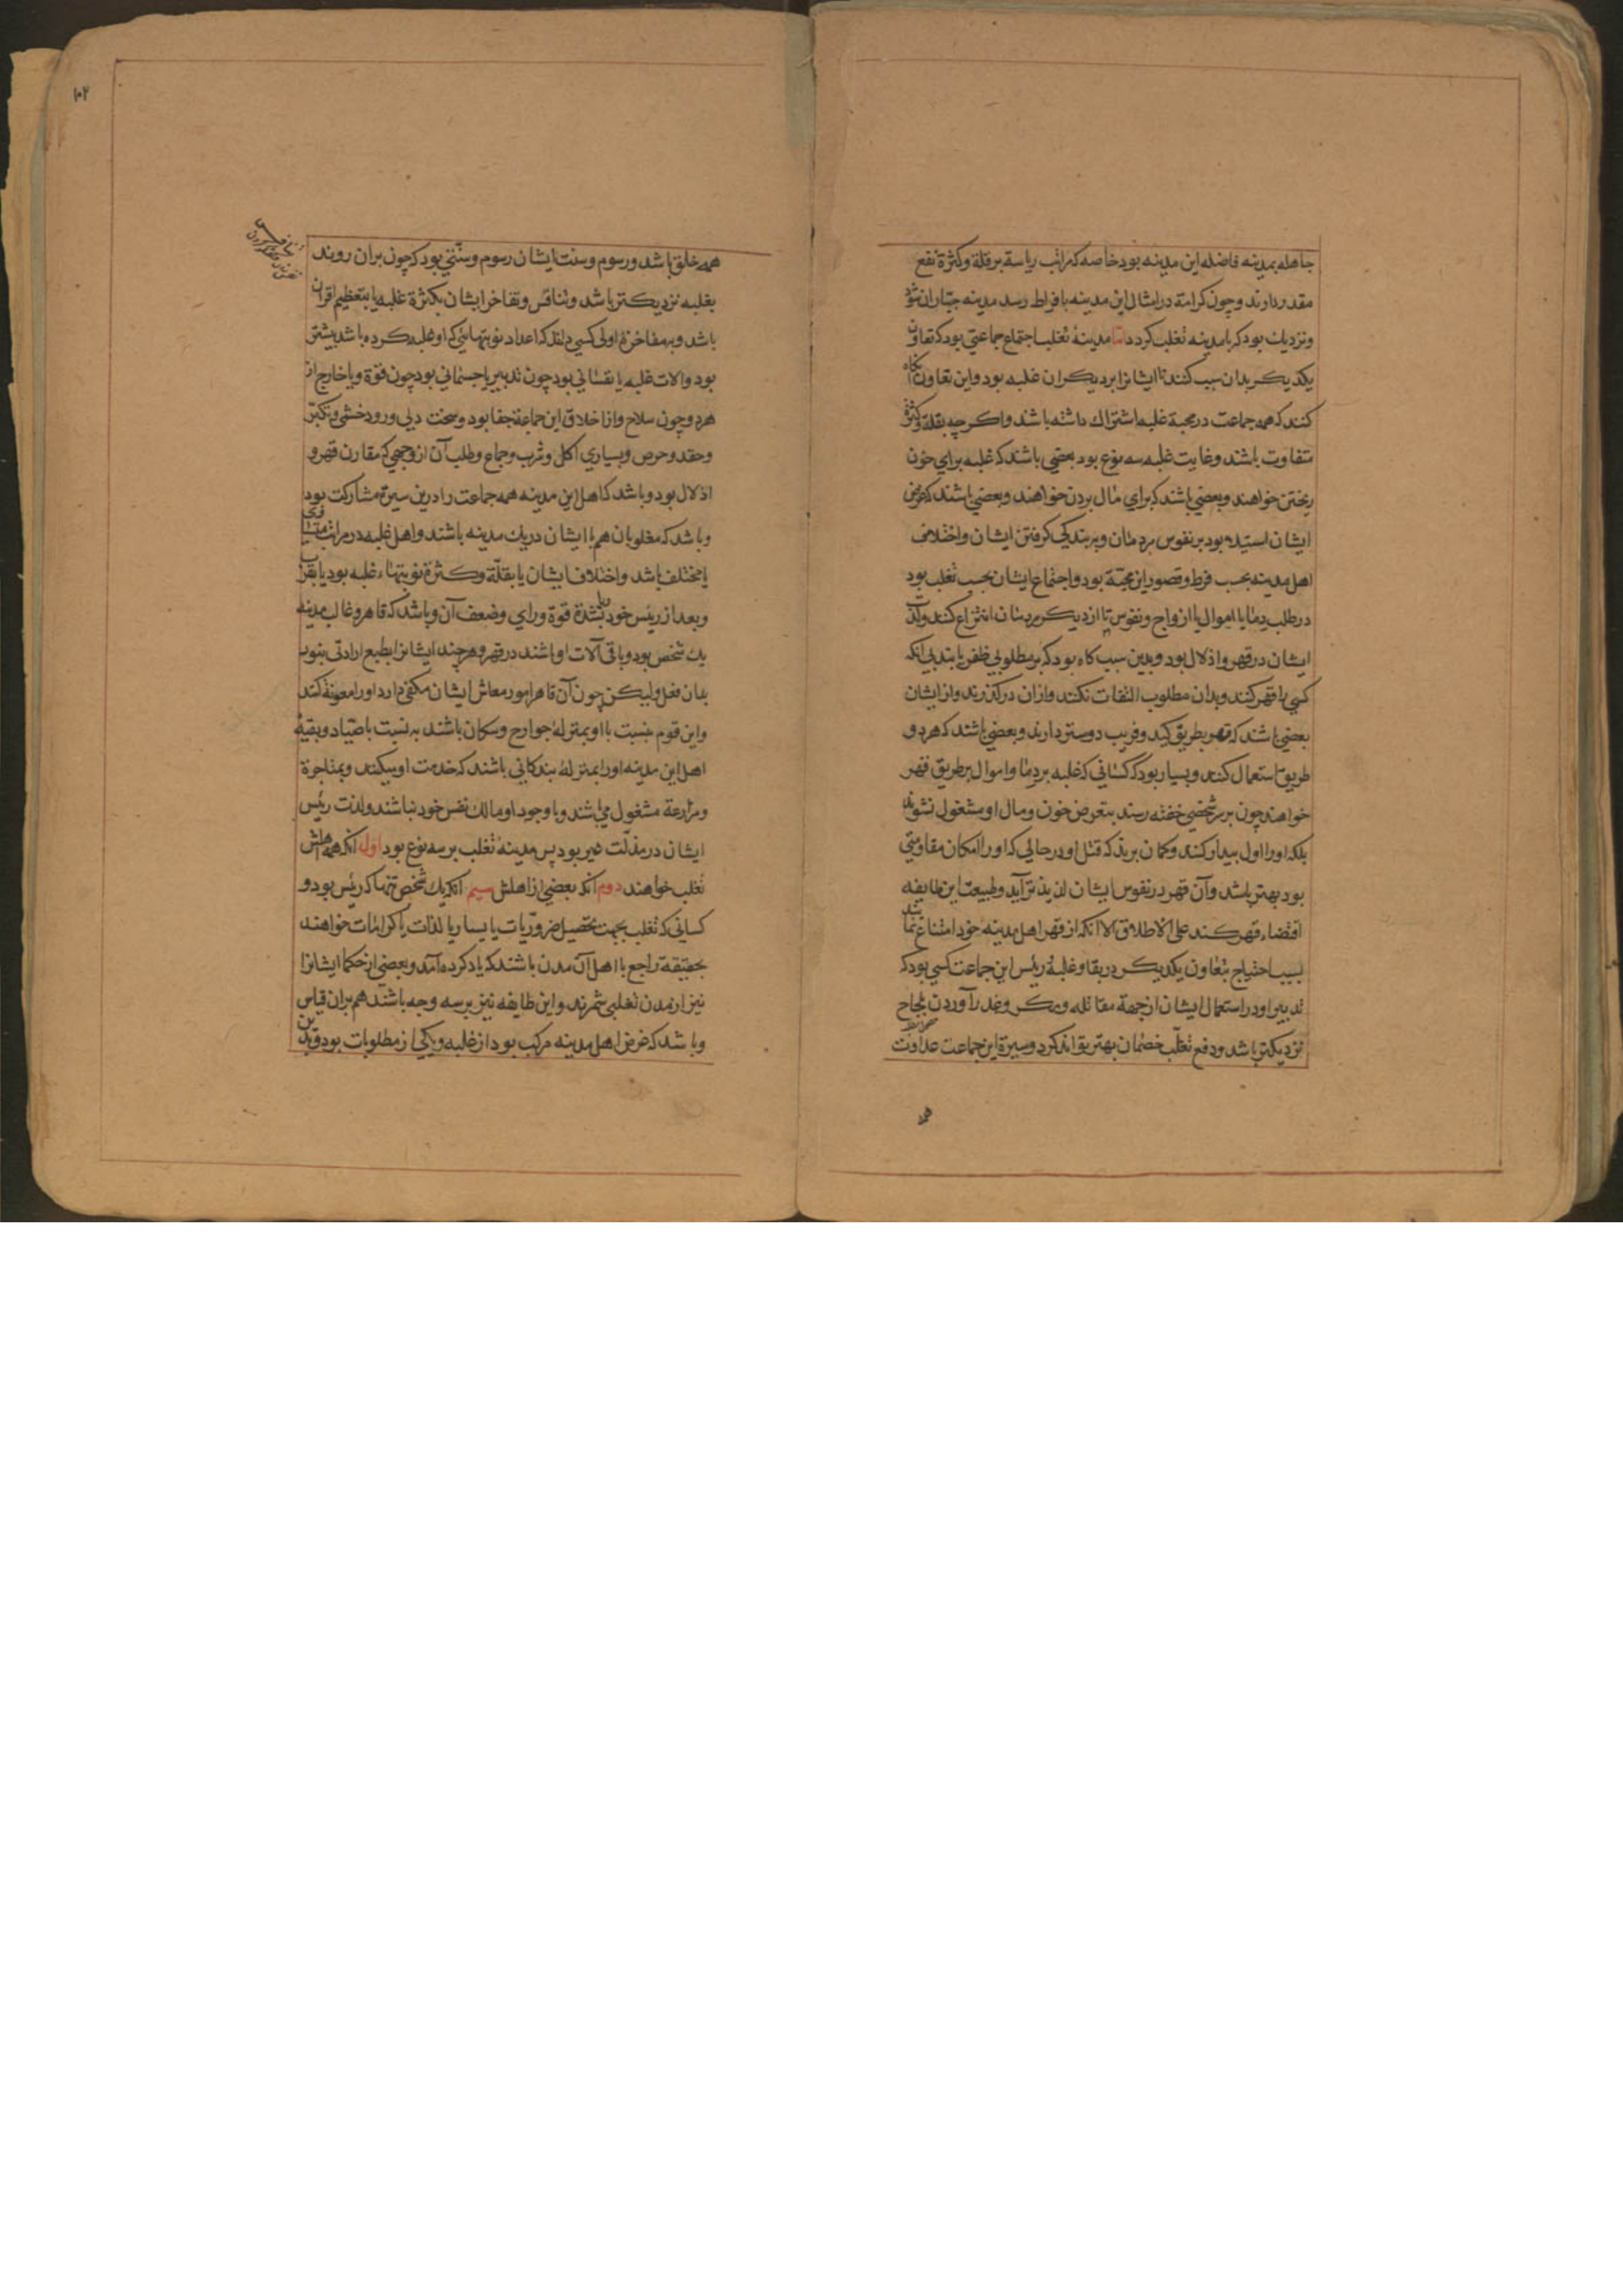 جاهله بمدینه فاضله این مدینه بود خاصه که مراتب ریاسة بر قلة وکثرة نفع
مقدر دارند وچون کرامة در امثال این مدینه بافراط رسد مدینه جباران شود
ونزدیک بود که با مدینه تغلب کردد اما مدینهٔ تغلب اجتماع جماعتی بود که تعاون
یکدیکر بدان سبب کنند تا ایشانرا بر دیکران غلبه بود واین تعاون آنکاه
کنند که همه جماعت در محبة غلبه اشتراک داشته باشند واکر چه بقلة وکثرة
متفاوت باشند وغایت غلبه سه نوع بود بعضی باشند که غلبه برای خون
ریختن خواهند وبعضی باشند که برای مال بردن خواهند وبعضی باشند که غرض
ایشان استیلا بود بر نفوس مردمان وببندکی کرفتن ایشان واختلاف
اهل مدینه بحسب فرط وقصور این محبة بود واجتماع ایشان بحسب تغلب بود
در طلب دما یا اموال یا ازواج ونفوس تا از دیکر مردمان انتزاع کنند ولذت
ایشان در قهر واذلال بود وبدین سبب کاه بود که بر مطلوبی ظفر یابند بی انکه
کسی را قهر کنند وبدان مطلوب التفات نکنند وازان درکذرند واز ایشان
بعضی باشند که قهر بطریق کید وفریب دوستر دارند وبعضی باشند که هر دو
طریق استعمال کنند وبسیار بود که کسانی که غلبه بر دما واموال بر طریق قهر
خواهند چون بر سر شخصی خفته رسند بتعرض خون ومال او مشغول نشوند
بلکه اورا اول بیدار کنند وکمان برند که قتل او در حالی که اورا امکان مقاومتی
بود بهتر باشد وآن قهر در نفوس ایشان لذیذتر آید وطبیعت این طایفه
اقتضاء قهر کند علی الاطلاق الا انکه از قهر اهل مدینه خود امتناع نمایند
بسبب احتیاج بتعاون یکدیکر در بقا وغلبهٔ رئیس این جماعت کسی بود که
تدبیر او در استعمال ایشان از جهة مقاتله ومکر وغدر آوردن بنجاح
نزدیکتر باشد ودفع تغلّب خصمان بهتر تواند کرد وسیرة این جماعت عداوت
همه
۱۰۲
همه خلق باشد ورسوم وسنت ایشان رسوم وسنّتی بود که چون بران روند
بغلبه نزدیکتر باشد وتنافس وتفاخر ایشان بکثرة غلبه یا بتعظیم اقران
باشد وبمفاخرة اولی کسی را کل که اعداد نوبتهائی که او غلبه کرده باشد بیشتر
بود وآلات غلبه یا نفسانی بود چون تدبیر یا جسمانی بود چون قوة ویا خارج از
هر دو چون سلاح واز اخلاق این جماعة جفا بود وسخت دلی وزود خشمی وتکبّر
وحقد وحرص وبسیاری اکل وشرب وجماع وطلب آن از وجهی که مقارن قهر و
اذلال بود وباشد که اهل این مدینه همه جماعت را درین سیرة مشارکت بود
وباشد که مغلوبان هم با ایشان در یک مدینه باشند واهل غلبه در مراتب متساوی
یا مختلف باشد واختلاف ایشان یا بقلّة وکثرة نوبتهاء غلبه بود یا بقرب
وبعد از رئیس خود یا بشدة قوة ورای وضعف آن وباشد که قاهر وغالب مدینه
یک شخص بود وباقی آلات او باشند در قهر وهر چند ایشانرا بطبع ارادتی نبود
بدان فعل ولیکن چون آن قاهر امور معاش ایشان مکفی دارد اورا معونة کنند
واین قوم بنسبت با او بمنزلهٔ جوارح وسکان باشند به نسبت با صیّاد وبقیهٔ
اهل این مدینه اورا بمنزلهٔ بندکانی باشند که خدمت او میکنند وبمتاجرة
ومزارعة مشغول می باشند وبا وجود او مالک نفس خود نباشند ولذت رئیس
ایشان در مذلّت غیر بود پس مدینهٔ تغلب بر سه نوع بود اول انکه همه اهلش
تغلب خواهند دوم انکه بعضی از اهلش سیم انکه یک شخص تنها که رئیس بود و
کسانی که تغلب بجهت تحصیل ضروریّات یا یسار یا لذات یا کرامات خواهند
بحقیقة راجع با اهل آن مدن باشند که یاد کرده آمد وبعضی از حکما ایشانرا
نیز از مدن تغلبی شمرند واین طایفه نیز بر سه وجه باشند هم بران قیاس
وباشد که غرض اهل مدینه مرکب بود از غلبه ویکی از مطلوبات بود وبدین